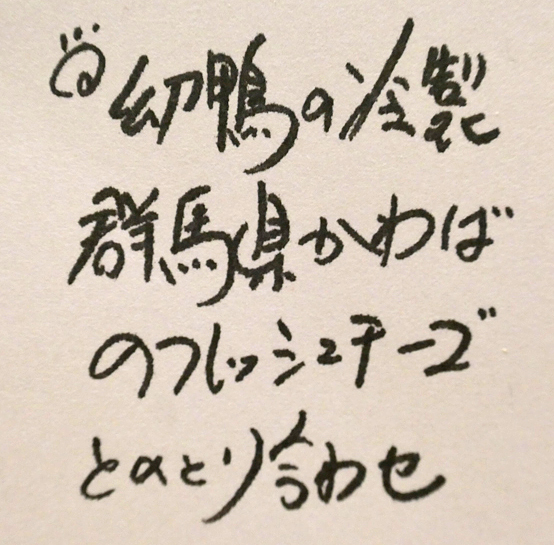 幼鴨の冷製
群馬県かわば
のフレッシュチーズ
とのとり合わせ